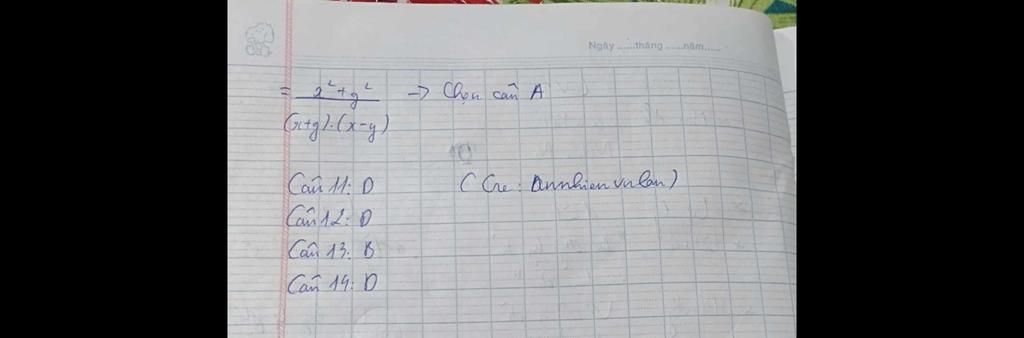 Ngày ......tháng ......năm......
= x² + y² / (x+y).(x-y) → Chọn câu A
Câu 11: D (Cre: Annhien vnlan)
Câu 12: D
Câu 13: B
Câu 14: D